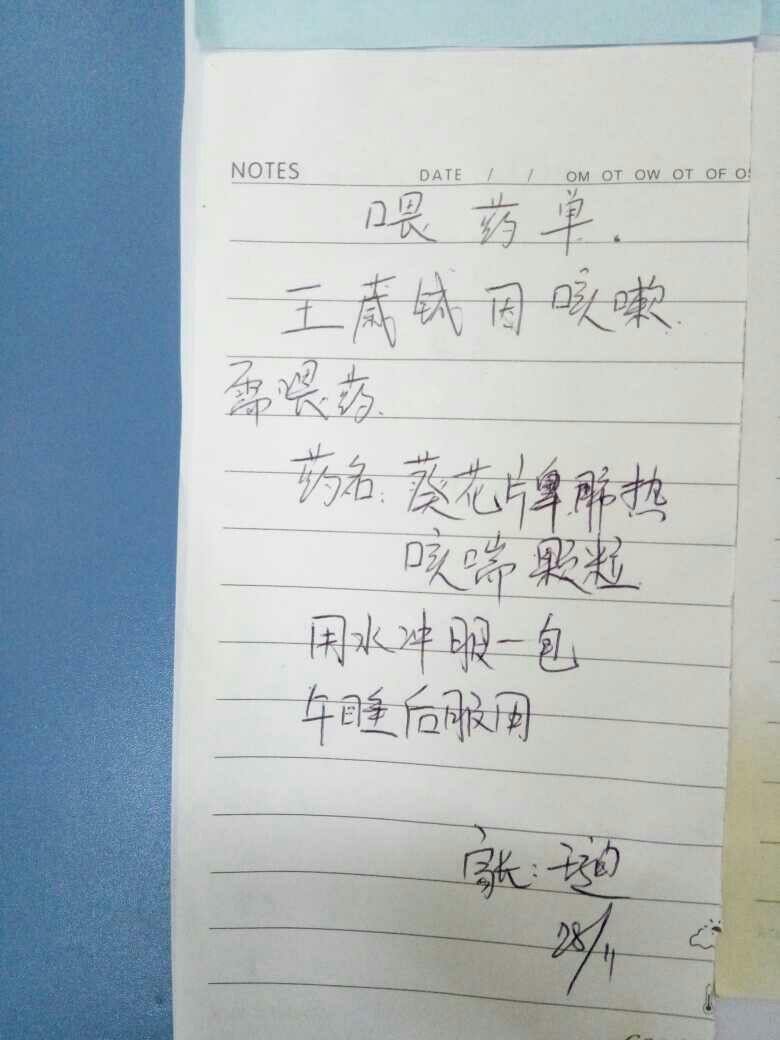 NOTES DATE / / OM OT OW OT OF
喂药单.
王葳铖因咳嗽.
需喂药.
药名:葵花牌肺热
咳喘颗粒.
用水冲服一包
午睡后服用
家长:王
28/11